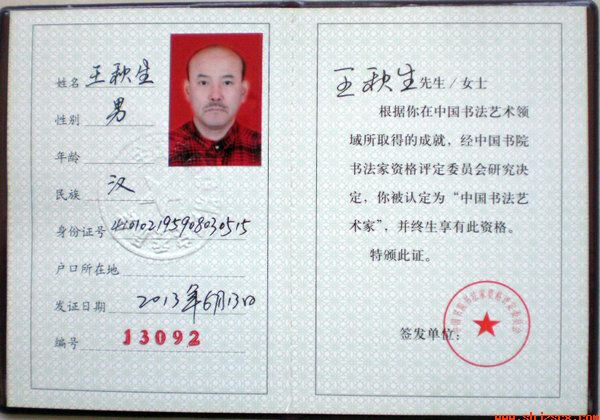 姓名 王秋生
性别 男
年龄
民族 汉
身份证号
户口所在地
发证日期 2013年6月13日
编号 13092
王秋生先生/女士
根据你在中国书法艺术领
域所取得的成就，经中国书院
书法家资格评定委员会研究决
定，你被认定为“中国书法艺
术家”，并终生享有此资格。
特颁此证。
签发单位：
中国书院书法家资格评定委员会